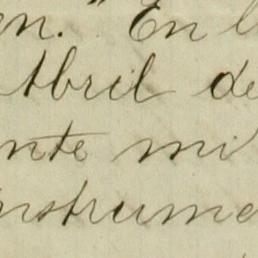 en." En l
Abril de
nte mi
nstrume